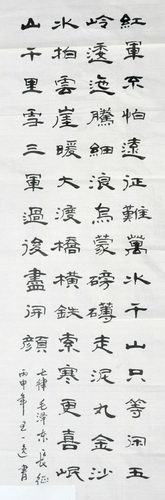 紅軍不怕遠征難萬水千山只等閑五
岭逶迤騰細浪烏蒙磅礴走泥丸金沙
水拍雲崖暖大渡橋橫鉄索寒更喜岷
山千里雪三軍過後盡開顏
七律毛澤東長征
丙申年書